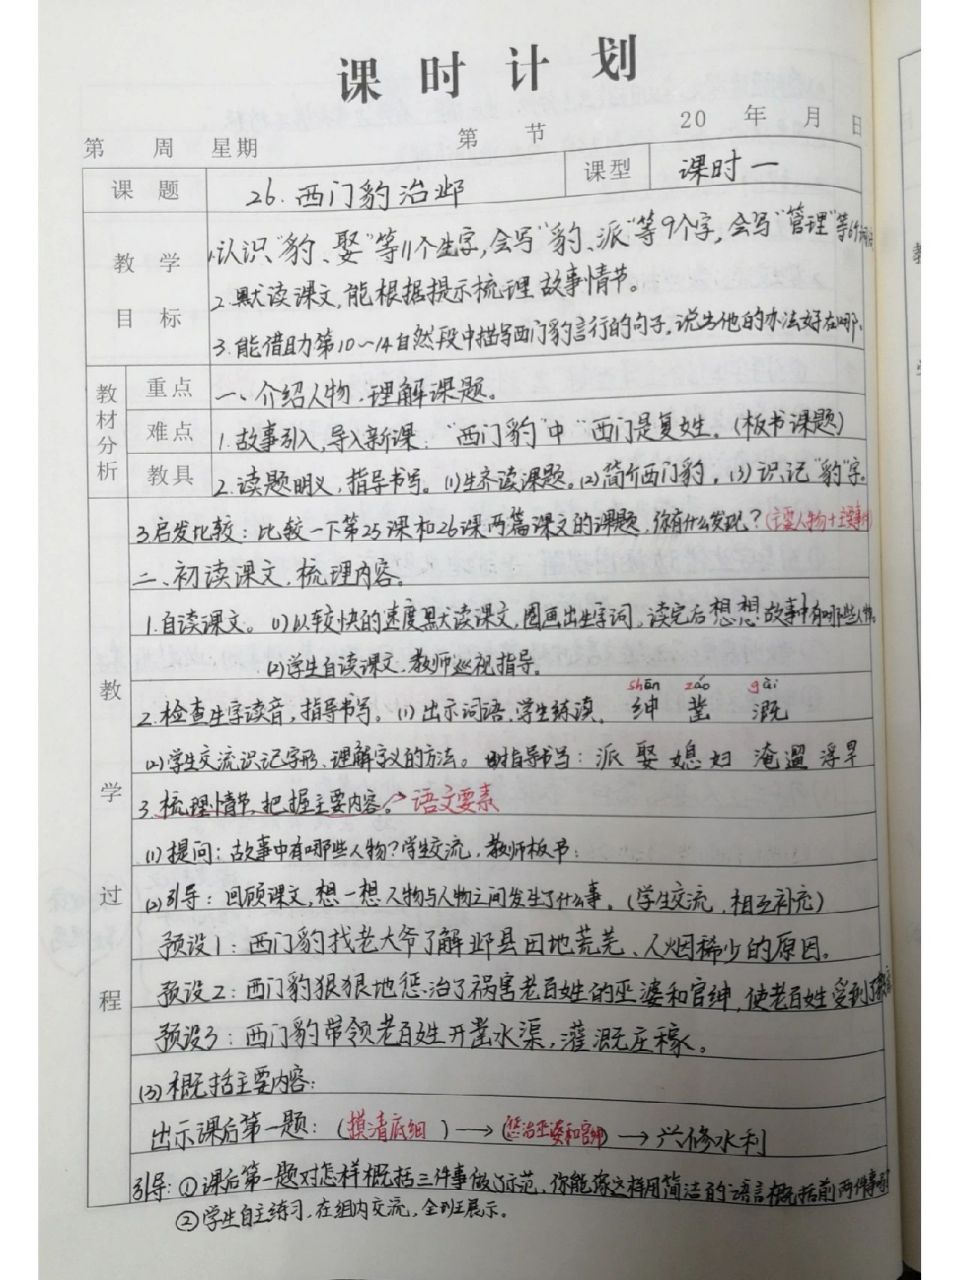 课时计划
第 周 星期 第 节 20 年 月 日
课题 26.西门豹治邺 课型 课时一
教学目标
1.认识"豹、娶"等11个生字,会写"豹、派"等9个字,会写"管理"等6个词语
2.默读课文,能根据提示梳理故事情节。
3.能借助第10~14自然段中描写西门豹言行的句子,说出他的办法好在哪。
教材分析
重点 一、介绍人物,理解课题。
难点 1.故事引入,导入新课:"西门豹"中"西门是复姓。(板书课题)
教具 2.读题明义,指导书写。(1)生齐读课题。(2)简介西门豹。(3)识记"豹"字。
教学过程
3.启发比较:比较一下第25课和26课两篇课文的课题,你有什么发现?(主要人物+主要事件)
二、初读课文,梳理内容。
1.自读课文。(1)以较快的速度默读课文,圈画出生字词,读完后想想故事中有哪些人物。
(2)学生自读课文,教师巡视指导。
shēn záo gài
2.检查生字读音,指导书写。(1)出示词语,学生练读。 绅 凿 溉
(2)学生交流识记字形、理解字义的方法。 指导书写:派 娶 媳 妇 淹 逼 浮 旱
3.梳理情节,把握主要内容。→语文要素
(1)提问:故事中有哪些人物?学生交流,教师板书:
(2)引导:回顾课文,想一想人物与人物之间发生了什么事。(学生交流,相互补充)
预设1:西门豹找老大爷了解邺县田地荒芜、人烟稀少的原因。
预设2:西门豹狠狠地惩治了祸害老百姓的巫婆和官绅,使老百姓受到了教育
预设3:西门豹带领老百姓开凿水渠,灌溉庄稼。
(3)概括主要内容:
出示课后第一题:(摸清底细)→(惩治巫婆和官绅)→兴修水利
引导:①课后第一题对怎样概括三件事做了示范,你能像这样用简洁的语言概括前两件事吗
②学生自主练习,在组内交流,全班展示。